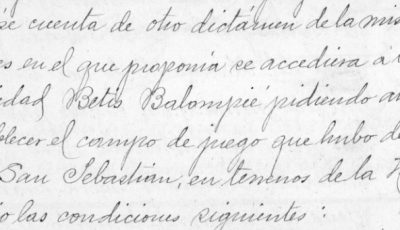 se cuenta de otro dictámen de la mis
es en el que proponía se accediera á
idad, Betis Balompié pidiendo au
blecer el campo de juego que hubo de
San Sebastián, en terrenos de la
o las condiciones siguientes: